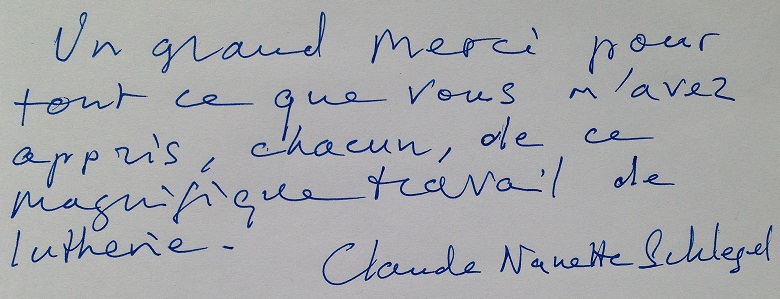 Un grand merci pour
tout ce que vous m'avez
appris, chacun, de ce
magnifique travail de
lutherie.
Claude Nanette Schlegel